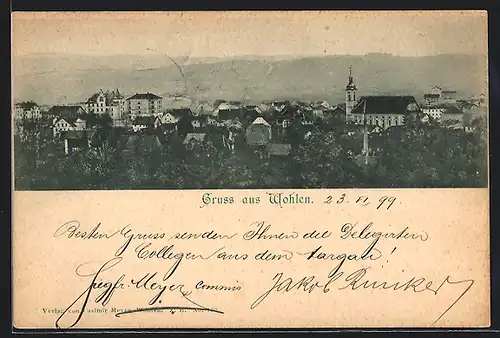 Gruss aus Wohlen. 23. VI 99.
Besten Gruss senden Ihnen die Delegirten
Collegen aus dem Aargau!
Siegfr Meyer commis Jakob Riniker
Verlag von Casimir Meyer, Wohlen.